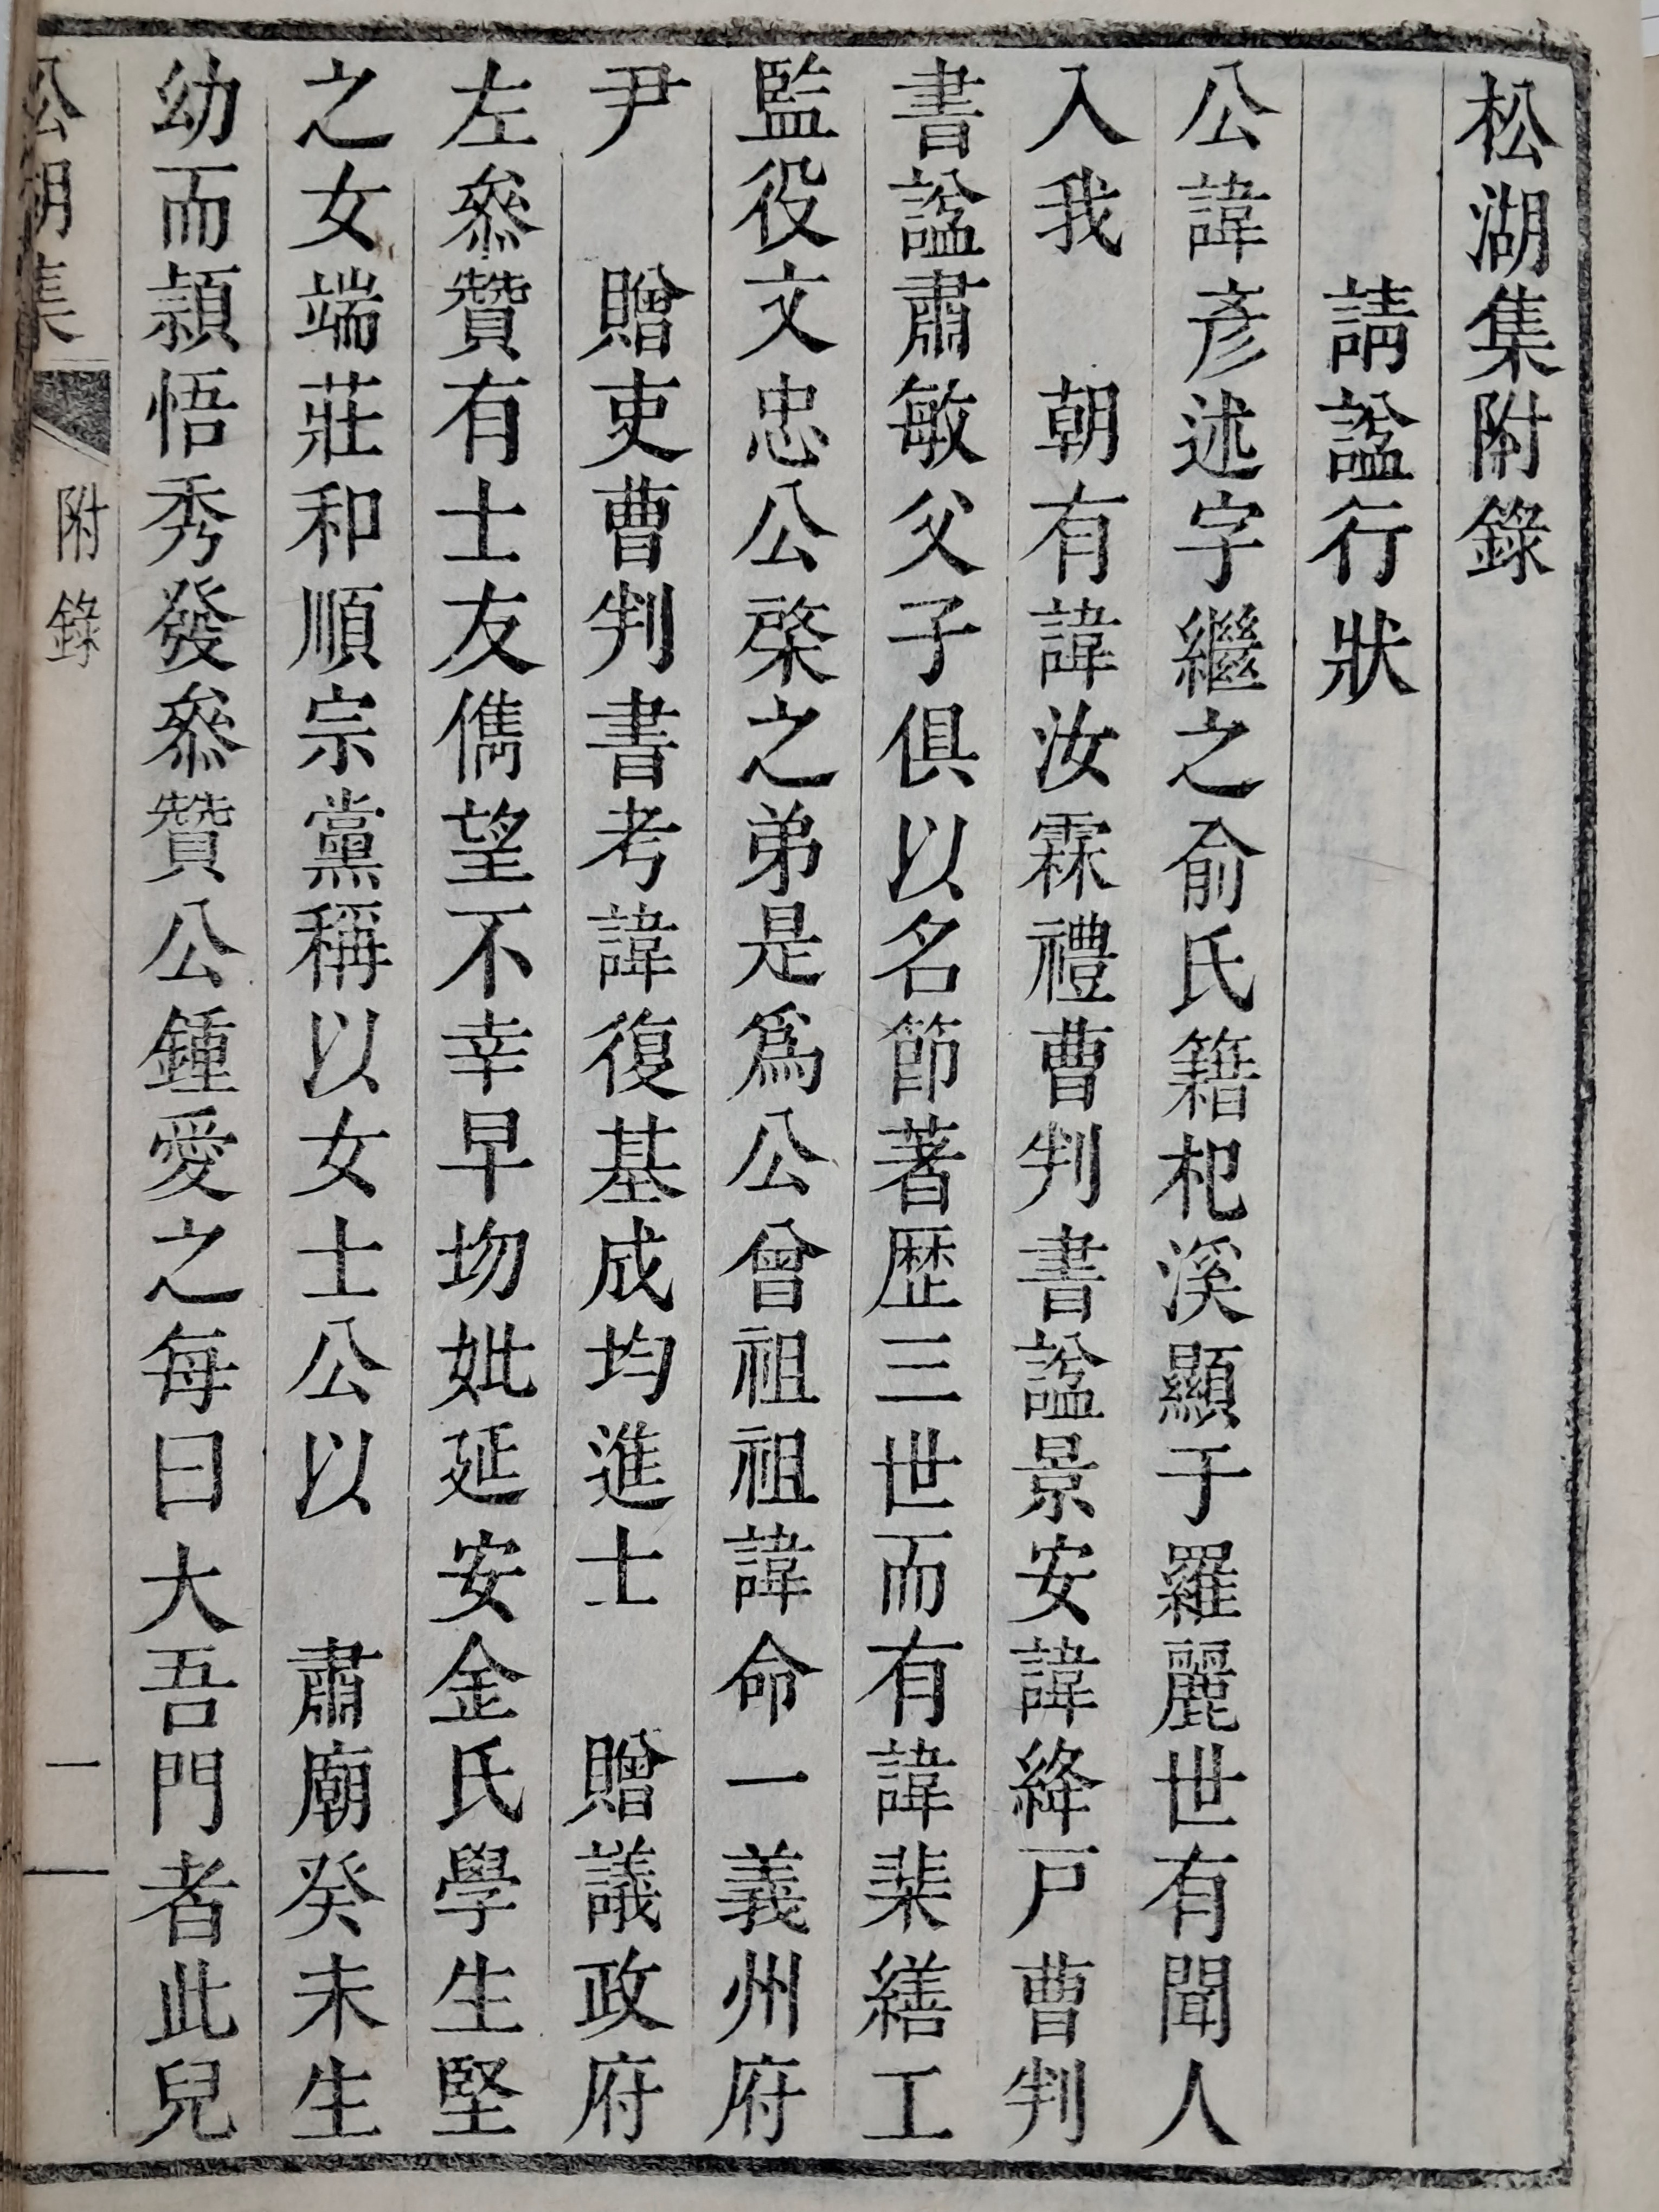 松湖集附錄
請謚行狀
公諱彥述字繼之俞氏籍杞溪顯于羅麗世有聞人
入我 朝有諱汝霖禮曹判書謚景安諱絳戶曹判
書謚肅敏父子俱以名節著歷三世而有諱棐繕工
監役文忠公棨之弟是爲公曾祖祖諱命一義州府
尹 贈吏曹判書考諱復基成均進士 贈議政府
左參贊有士友儁望不幸早歾妣延安金氏學生堅
之女端莊和順宗黨稱以女士公以 肅廟癸未生
幼而頴悟秀發參贊公鍾愛之每曰大吾門者此兒
松湖集 附錄 一